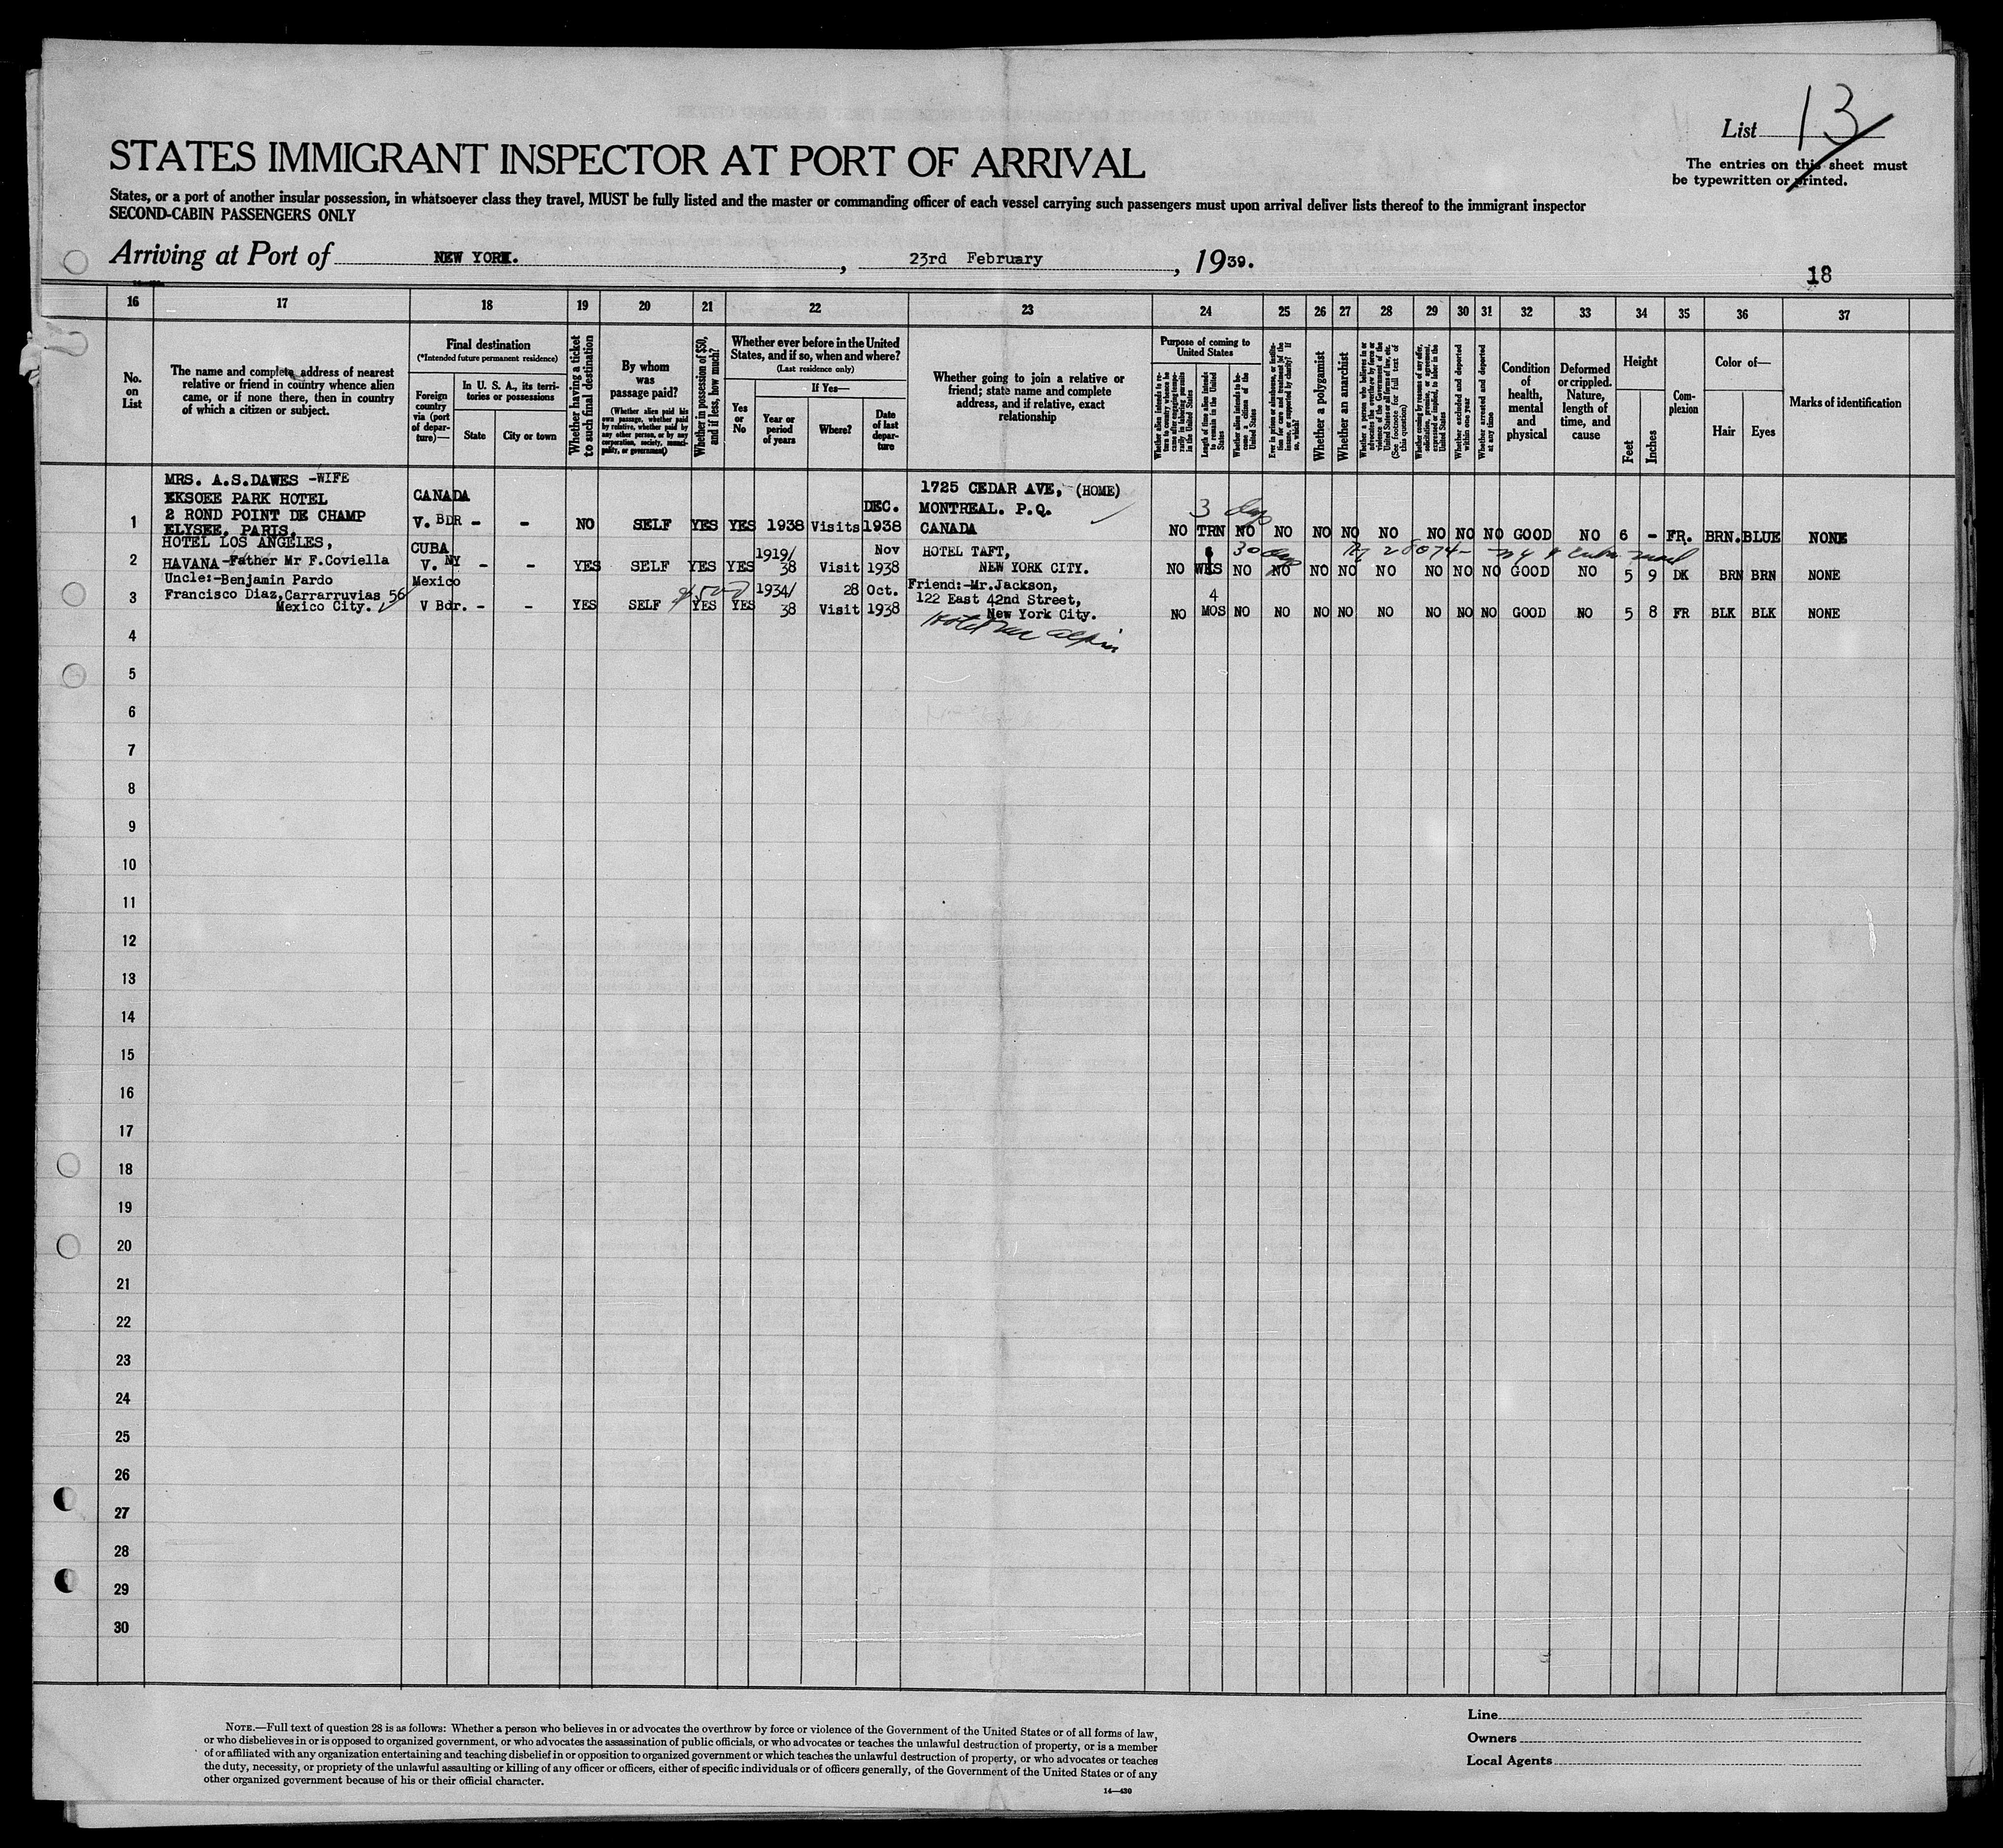 List 13
The entries on this sheet must
be typewritten or printed.
STATES IMMIGRANT INSPECTOR AT PORT OF ARRIVAL
States, or a port of another insular possession, in whatsoever class they travel, MUST be fully listed and the master or commanding officer of each vessel carrying such passengers must upon arrival deliver lists thereof to the immigrant inspector
SECOND-CABIN PASSENGERS ONLY
Arriving at Port of NEW YORK. , 23rd February , 1939.
18
16 17 18 19 20 21 22 23 24 25 26 27 28 29 30 31 32 33 34 35 36 37
No. on List
The name and complete address of nearest
relative or friend in country whence alien
came, or if none there, then in country
of which a citizen or subject.
Final destination
(*Intended future permanent residence)
Foreign country via (port of departure)—
In U. S. A., its territories or possessions
State
City or town
Whether having a ticket to such final destination
By whom was passage paid?
(Whether alien paid his own passage, whether paid by relative, whether paid by any other person, or by any corporation, society, municipality, or government)
Whether in possession of $50, and if less, how much?
Whether ever before in the United States, and if so, when and where?
(Last residence only)
Yes or No
If Yes—
Year or period of years
Where?
Date of last departure
Whether going to join a relative or
friend; state name and complete
address, and if relative, exact
relationship
Purpose of coming to United States
Whether alien intends to return to country whence he came after engaging temporarily in laboring pursuits in the United States
Length of time alien intends to remain in the United States
Whether alien intends to become a citizen of the United States
Ever in prison or almshouse, or institution for care and treatment of the insane, or supported by charity? If so, which?
Whether a polygamist
Whether an anarchist
(See footnote for full text of this question)
Whether coming by reason of any offer, solicitation, promise, or agreement, expressed or implied, to labor in the United States
Whether excluded and deported within one year
Whether arrested and deported at any time
Condition of health, mental and physical
Deformed or crippled. Nature, length of time, and cause
Height
Feet
Inches
Complexion
Color of—
Hair
Eyes
Marks of identification
MRS. A.S.DAWES -WIFE
EKSOEE PARK HOTEL
2 ROND POINT DE CHAMP
ELYSEE, PARIS.
1 CANADA V. BDR - - NO SELF YES YES 1938 Visits DEC. 1938
1725 CEDAR AVE, (HOME)
MONTREAL. P.Q.
CANADA
3 days
NO TRN NO NO NO NO NO NO NO NO GOOD NO 6 - FR. BRN. BLUE NONE
HOTEL LOS ANGELES,
2 HAVANA -Father Mr F.Coviella
CUBA V. NY - - YES SELF YES YES 1919/38 Visit Nov 1938
HOTEL TAFT,
NEW YORK CITY.
30 days
NO WKS NO NO NO NO NO NO NO NO GOOD NO 5 9 DK BRN BRN NONE
Uncle:-Benjamin Pardo
3 Francisco Diaz,Carrarruvias 56
Mexico City.
Mexico V Bdr. - - YES SELF $500 YES YES 1934/38 Visit 28 Oct. 1938
Friend:-Mr.Jackson,
122 East 42nd Street,
New York City.
Hotel Mc Alpin
NO 4 MOS NO NO NO NO NO NO NO NO GOOD NO 5 8 FR BLK BLK NONE
4
5
6
7
8
9
10
11
12
13
14
15
16
17
18
19
20
21
22
23
24
25
26
27
28
29
30
NOTE.—Full text of question 28 is as follows: Whether a person who believes in or advocates the overthrow by force or violence of the Government of the United States or of all forms of law,
or who disbelieves in or is opposed to organized government, or who advocates the assassination of public officials, or who advocates or teaches the unlawful destruction of property, or is a member
of or affiliated with any organization entertaining and teaching disbelief in or opposition to organized government or which teaches the unlawful destruction of property, or who advocates or teaches
the duty, necessity, or propriety of the unlawful assaulting or killing of any officer or officers, either of specific individuals or of officers generally, of the Government of the United States or of any
other organized government because of his or their official character.
14—430
Line
Owners
Local Agents